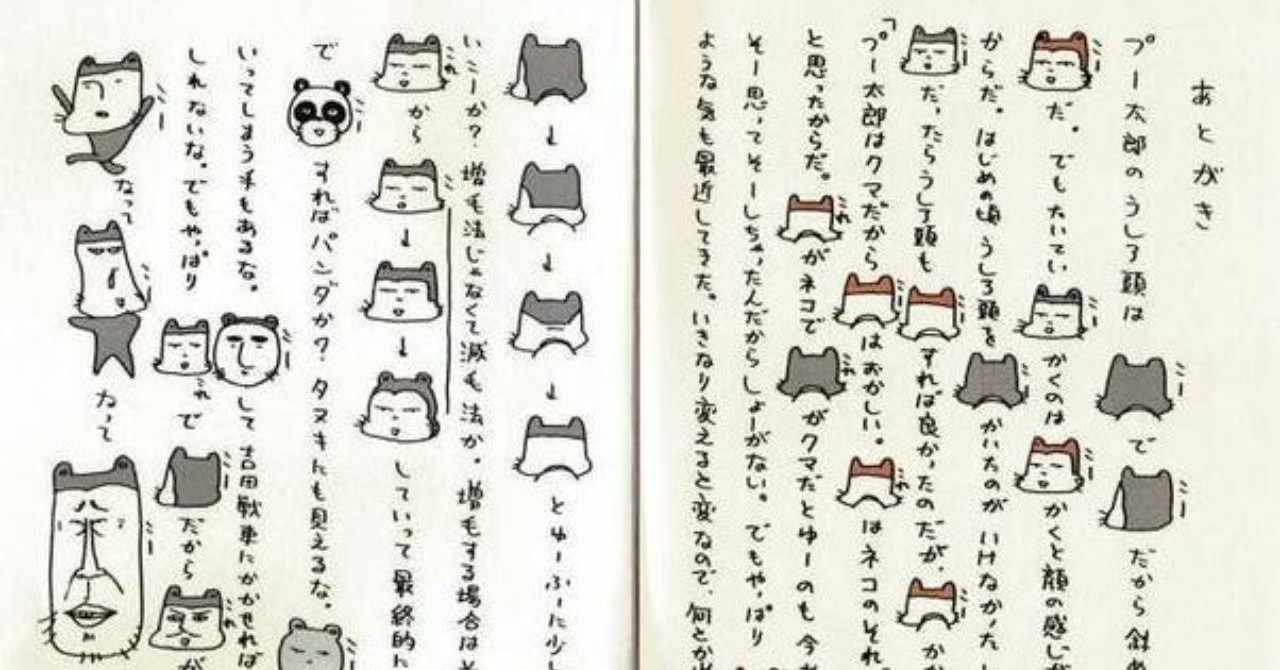 あとがき
プー太郎のうしろ頭は で だから斜め
だ。でもたいてい かくのは かくと顔の感じが
からだ。はじめの頃うしろ頭を かいたのがいけなかった
だ、たらうしろ頭も すれば良かったのだが、
「プー太郎はクマだから はおかしい。 はネコのそれ
と思ったからだ。 これ がネコで これ がクマだとゆーのも今
そー思ってそーしちゃったんだからしょーがない。でもやっぱり
ような気も最近してきた。いきなり変えると変なので、何とか
↓ ↓ ↓ とゆーふーに少し
いこーか？増毛法じゃなくて減毛法か。増毛する場合は
これ から ↓ ↓ していって最終的に
で すればパンダか？タヌキにも見えるな。
いってしまう手もあるな。 して吉田戦車にかかせれば
しれないな。でもやっぱり これ で だから これ が
なって なって